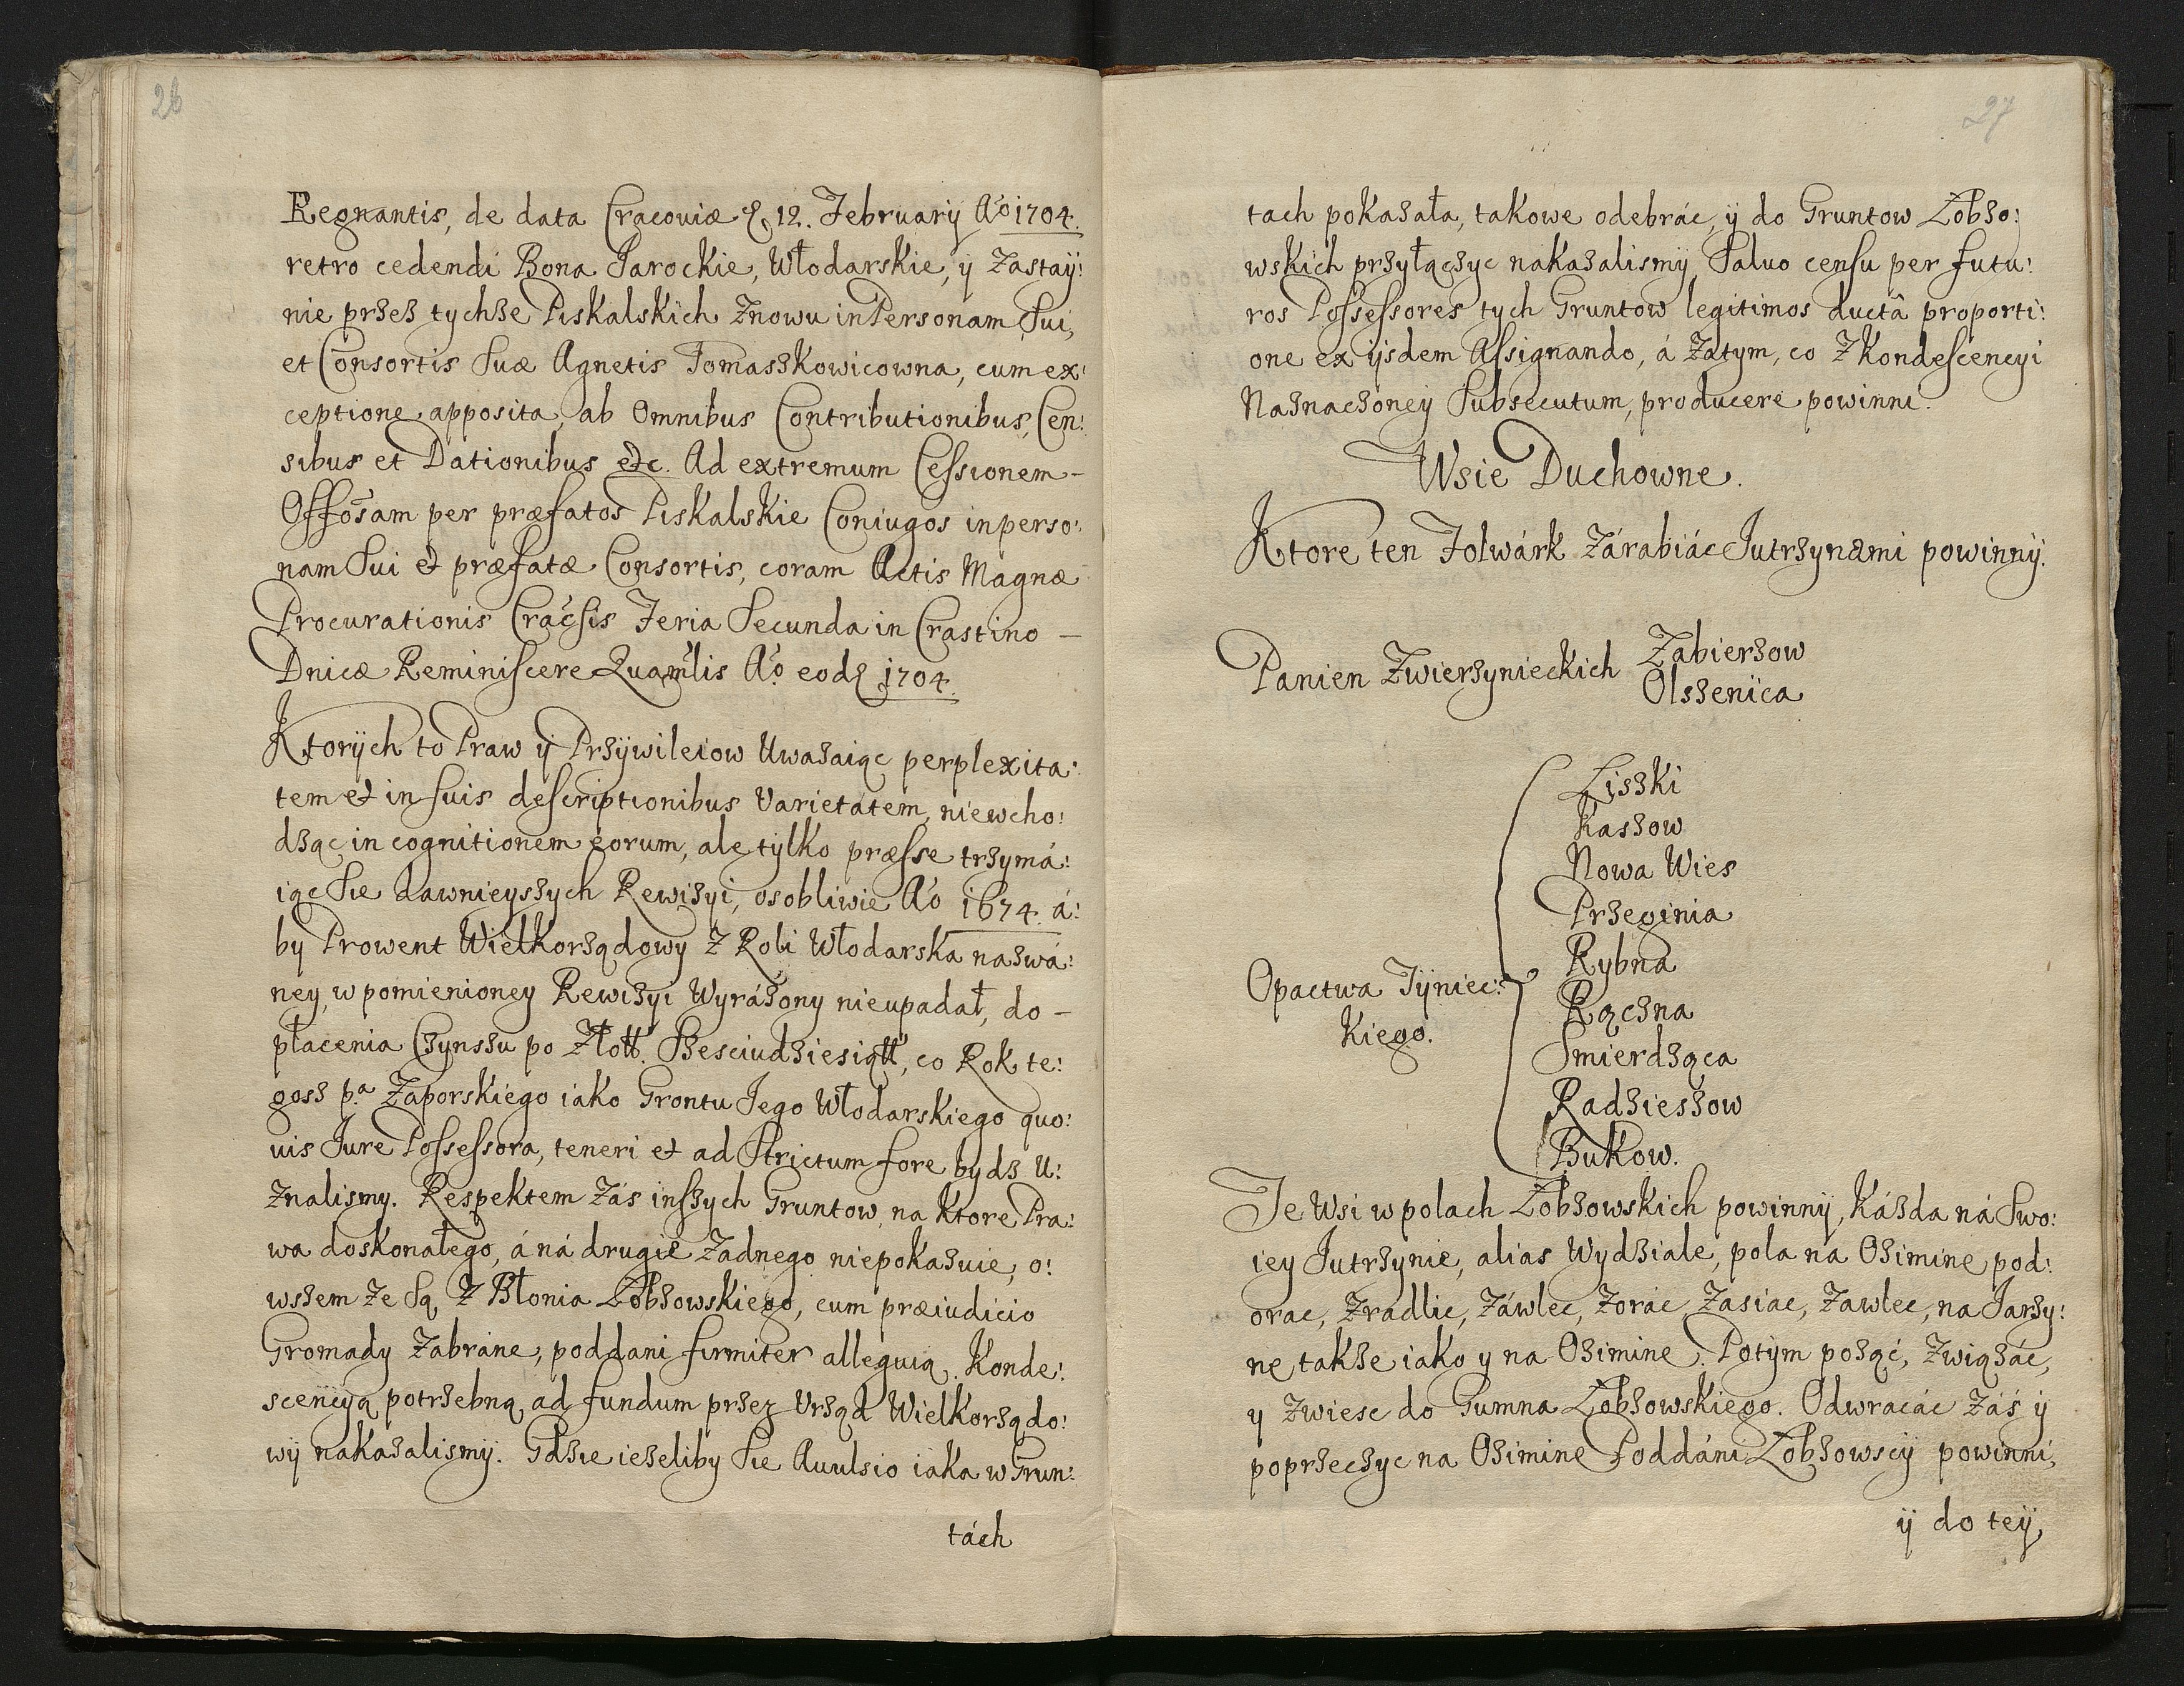 26
Regnantis, de data Cracoviæ d. 12. February Ao 1704.
retro cedendi Bona Jarockie, Włodarskie, ÿ Zastaÿ:
nie przez tychze Piskalskich Znowu in Personam Sui,
et Consortis Suæ Agnetis Tomaszkowicowna, cum ex:
ceptione apposita, ab Omnibus Contributionibus, Cen:
sibus et Dationibus etc. Ad extremum Cessionem -
Offosam per præfatos Piskalskie Coniugos in perso:
nam Sui et præfatæ Consortis, coram Actis Magnæ
Procurationis Cracsis Feria Secunda in Crastino -
Dnicæ Reminiscere Quamlis Ao. eod 1704.
Ktorÿch to Praw ÿ Przÿwileiow Uwazaiąc perplexita:
tem et in suis descriptionibus Varietatem, niewcho:
dząc in cognitionem eorum, ale tylko præsse trzymá:
iąc Sie dawnieyszych Rewizyi, osobliwie Ao 1674. á:
by Prowent Wielkorządowy Z Roli Włodarska nazwá:
ney, w pomienioney Rewizyi Wyrázony nieupadał, do -
płacenia Czynszu po Złott. Szesciudziesiątt, co Rok te:
gosz p.a Zaporskiego iako Grontu Jego Włodarskiego quo:
vis Jure Possessora, teneri et ad Strictum fore bydz U:
Znalismy. Respektem Zás inszych Gruntow, na Ktore Pra:
wa doskonałego, á ná drugie Zadnego niepokazuie, o:
wszem Ze Są Z Błonia Łobzowskiego, cum præiudicio
Gromady Zabrane, poddani firmiter alleguią. Konde:
scencyą potrzebną ad fundum przez Urząd Wielkorządo:
wÿ nakazalismÿ. Gdzie iezeliby Sie Avulsio iaka w Grun:
tách
27
tach pokazała, takowe odebrác, ÿ do Gruntow Łobzo:
wskich przyłączyc nakazalismÿ, Salvo censu per futu:
ros Possessores tych Gruntow legitimos ductâ proporti:
one ex ijsdem Assignando, á Zatym, co Z Kondescencyi
Naznaczoney Subsecutum, producere powinni.
Wsie Duchowne.
Ktore ten Folwárk Zárabiác Jutrzynami powinnÿ.
Panien Zwierzynieckich Zabierzow
Olszenica
Liszki
Kaszow
Nowa Wies
Przeginia
Rybna
Opactwa Tÿniec:
Kiego.
Rączna
Smierdząca
Radzieszow
Bukow.
Te Wsi w polach Łobzowskich powinnÿ, Kázda ná Swo:
iey Jutrzynie, alias Wydziale, pola na Ozimine pod:
orac, Zradlic, Záwlec, Zorác Zasiac, Zawlec, na Jarzy:
ne takze iako y na Ozimine. Potÿm poząć, Związác,
y Zwiesc do Gumna Łobzowskiego. Odwracác Záś ÿ
poprzeczyc na Ozimine Poddáni Łobzowscÿ powinni,
ÿ do teÿ,